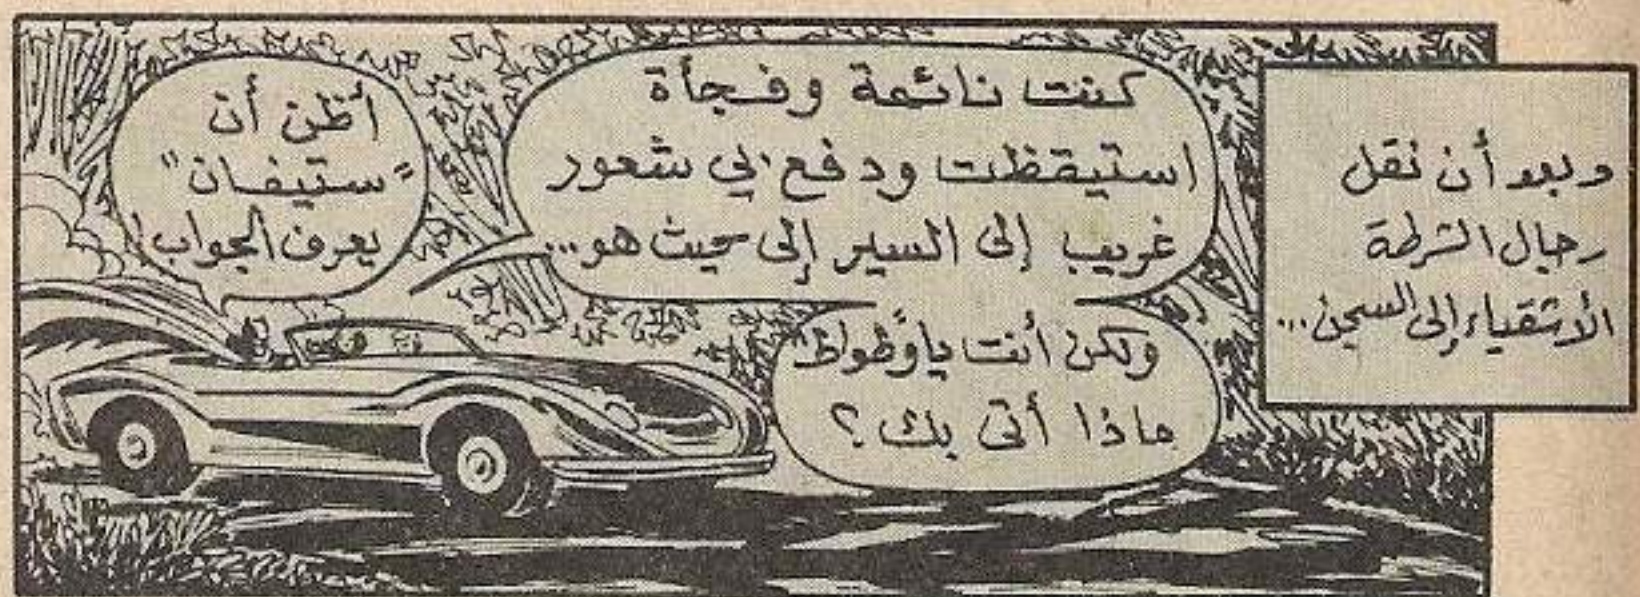 وبعد أن نقل
رجال الشرطة
الأشقياء إلى السجن...
كنت نائمة وفجأة
استيقظت ودفع بي شعور
غريب إلى السير إلى حيث هو...
ولكن أنت يا وطواط
ماذا أتى بك؟
أظن أن
"ستيفان"
يعرف الجواب!